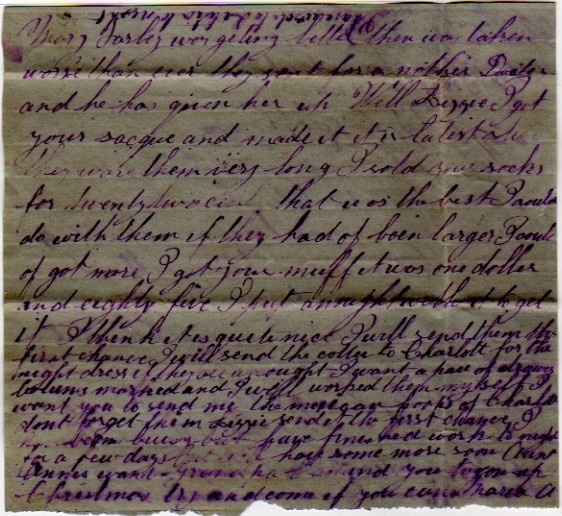 Mary Farley was geting bette then was taken
worse than ever they sent for a nother Doctor
and he has given her up Well Lizzie I got
your sacque and made it it is latest
they ware them very long I sold your socks
for twenty two cent that was the best I could
do with them if they had of been larger I could
of got more I got your muff it was one doller
and eighty five I put annuph with it to get
it I think it is quite nice I will send them the
first chance I will send the coller to Charlott for the
night dress if they are a nought I want a pare of
marked and I will worked them myself I
want you to send me the of Charlott
dont forget them Lizzie send the first chance I
have been buissy but have finished work to night
for a few days but will have some more soon Aunt
Annie want and you to come up
Christmas try and come if you can Maria A